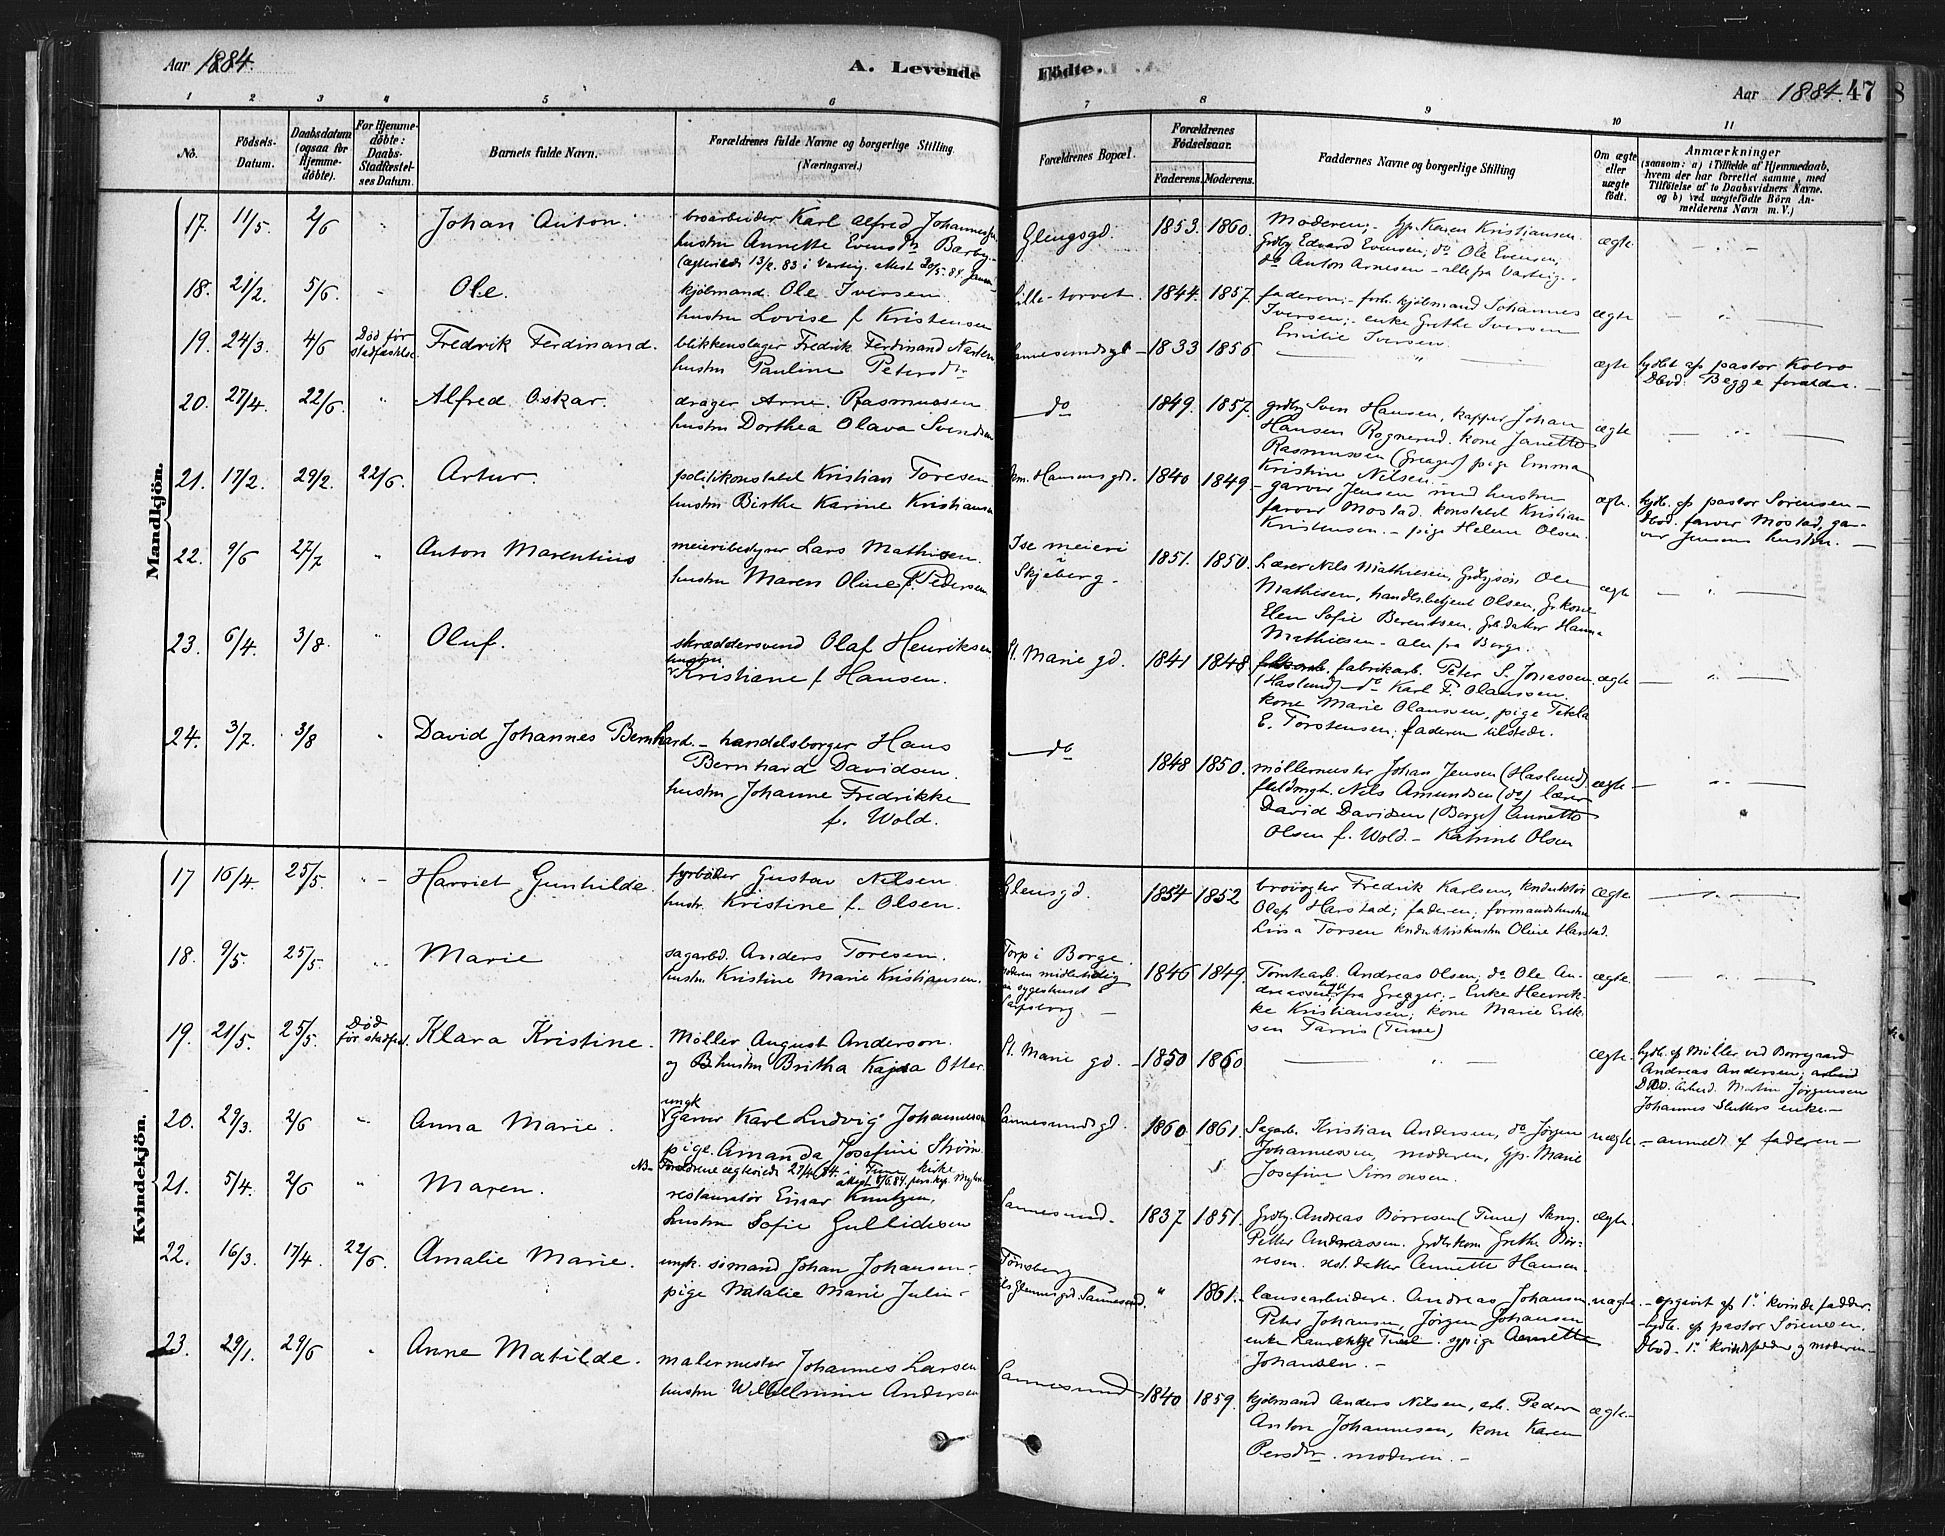 Aar 1884.
A. Levende
Fødte.
Aar 1884. 47
1 2 3 4 5 6 7 8 9 10 11
No.
Fødsels-
Datum.
Daabsdatum
(ogsaa for
Hjemme-
døbte).
For Hjemme-
døbte:
Daabs-
Stadfæstel-
ses Datum.
Barnets fulde Navn.
Forældrenes fulde Navne og borgerlige Stilling
(Næringsvei.)
Forældrenes Bopæl.
Forældrenes
Fødselsaar.
Faderens. Moderens.
Faddernes Navne og borgerlige Stilling
Om ægte
eller
uægte
født.
Anmærkninger
(saasom: a) i Tilfælde af Hjemmedaab,
hvem der har forrettet samme, med
Tilføielse af to Daabsvidners Navne.
og b) ved uægtefødte Børn An-
melderens Navn m. V.)
Mandkjön.
17. 11/5 2/6 " Johan Anton.
broarbeider Karl Alfred Johannesen
hustru Annette Evensdr Barby.
(ægteviedi 13/2. 83 i Varteig. attest 30/5. 84.
Glengsgd. 1853. 1860.
Moderen, - Gp. Karen Kristiansen.
Grdbg Edvard Evensen, do Ole Evensen,
do Anton Arnesen - alle fra Varteig.
ægte
18. 21/2. 5/6. Ole.
kjølmand. Ole Iversen.
hustru Lovise f Kristensen
Lille-torvet. 1844. 1857.
faderen, - forh. kjølmand Johannes
Iversen; - enke Grethe Iversen
Emilie Iversen.
ægte
19. 24/3. 4/6 Død før
stadfæstelse Fredrik Ferdinand.
blikkenslager Fredrik Ferdinand
hustru Pauline Petersdr
Sannesundsgd 1833 1856
ægte
hjdbt af pastor Kobro
Dbvd. Begge forældre. -
20. 27/4. 22/6. " Alfred Oskar.
drager Arne Rasmussen
hustru Dorthea Olava Svendsen
do 1849. 1857.
grdbg Sven Hansen, kapper Johan
Hansen Rognerud. kone Janette
Rasmussen (Greager) pige Emma
Kristine Nilsen. -
ægte
21. 17/2. 29/2. 22/6. Artur.
politikonstabel Kristian Toresen
hustru Birthe Karine Kristiansen
Hansens gd. 1840 1849
garver Jensen med hustru
farver Mostad. konstabel Kristian
Kristensen. - pige Helene Olsen.
ægte.
hjdb. af pastor Sørensen -
Dbvd. farver Mostad, gar-
ver Jensens hustru. -
22. 9/6 27/7 " Anton Marentius
meieribestyrer Lars Mathisen
hustru Maren Oline f. Pedersen
Ise meieri
i
Skjeberg. 1851. 1850.
Lærer Nils Mathiesen, Grdbgsøn Ole
Mathesen, handelsbetjent Olsen, Gr kone
Elen Sofie Berentsen, Gb. datter Hanna
Mathiesen - alle fra Borge.
ægte
23. 6/4. 3/8. " Oluf.
skræddersvend Olaf Henriksen
hustru
Kristiane f Hansen.
St. Marie gd. 1841 1848
fabrikarb. Peter S. Jonassen.
(Haslund) - do Karl F. Olaussen.
kone Marie Olaussen, pige Tekla
E. Torstensen; faderen tilstede.
ægte
24. 3/7. 3/8 " David Johannes Bernhard.
- handelsborger Hans
Bernhard Davidsen.
hustru Johanne Fredrikke
f. Wold.
do 1848 1850.
møllermester Johan Jensen (Haslund)
fuldmgt. Nils Amundsen (do) lærer
David Davidsen (Borge) Annette
Olsen f. Wold - Katrine Olsen
ægte
Kvindekjön.
17 16/4. 25/5. Harriet Gunhilde.
fyrbøder Gustav Nilsen
hustr. Kristine f. Olsen.
Glensgd. 1854 1852
brovogter Fredrik Karlsen, konduktør
Olaf Harstad; faderen; formandshustru
Lovisa Torsen konduktørhustru Oline Harstad.
ægte.
18. 9/5. 25/5. Marie
sagarbd. Anders Toresen.
hustr. Kristine Marie Kristiansen.
Torp i Borge.
moderen midlertidig
sygehuset
Sarpsborg - 1846 1849.
Tomtearb. Andreas Olsen, do Ole An-
dreassen, begge fra Greager. - Enke Henrik-
ke Kristiansen; kone Marie Erik-
sen Tarris (Tune)
ægte.
19. 21/5. 25/5. Død
før stadfæst. Klara Kristine.
Møller August Anderson.
og hustru Britha Kajsa Otter.
St. Marie gd. 1850 1860
ægte.
hjdb. af Møller ved Borregaard
Andreas Andersen;
Dbvd. arbeid. Martin Jørgensen
Johannes Slutters enke. -
20. 29/3. 2/6 " Anna Marie.
ungk.
garver Karl Ludvig Johannesen
pige. Amanda Josefine Strøm.
NB - Forældrene ægteviedi 27/4 84. i Tune kirke
attest 8/6 84.
Sannesundsgd. 1860 1861.
Sagarb. Kristian Andersen, do Jørgen
Johannessen, moderen, gp. Marie
Josefine Simonsen.
uægte - anmeldt af faderen -
21. 5/4. 2/6 " Maren.
restauratør Einar Knutzen.
hustru Sofie Gullidsen
Sannesund. 1837 1851.
Grdbg. Andreas Børresen (Tune)
Petter Andreassen. Grdb. kone Grethe Bør-
resen. rest. datter Annette Hansen.
ægte.
22. 16/3. 17/4. 22/6. Amalie Marie.
ungk. sømand Johan Johansen -
pige Natalie Marie
Tønsberg
Glengsgd. Sannesund. " 1861.
lænsearbeidere. Andreas Johansen
Peter Johansen, Jørgen Johansen
enke sypige Annette
Johansen. -
uægte. - opgivet af 1e kvindefadder.
- hjdb. af pastor Sørensen
Dbvd. 1e kvindefadder og moderen
23. 29/1. 29/6 " Anne Matilde.
malermester Johannes Larsen
hustru Wilhelmine Andersen
Sannesund 1840 1859.
kjølmand Anders Nilsen, arb. Peder
Anton Johannesen, kone Karen
Persdr. moderen. -
ægte.